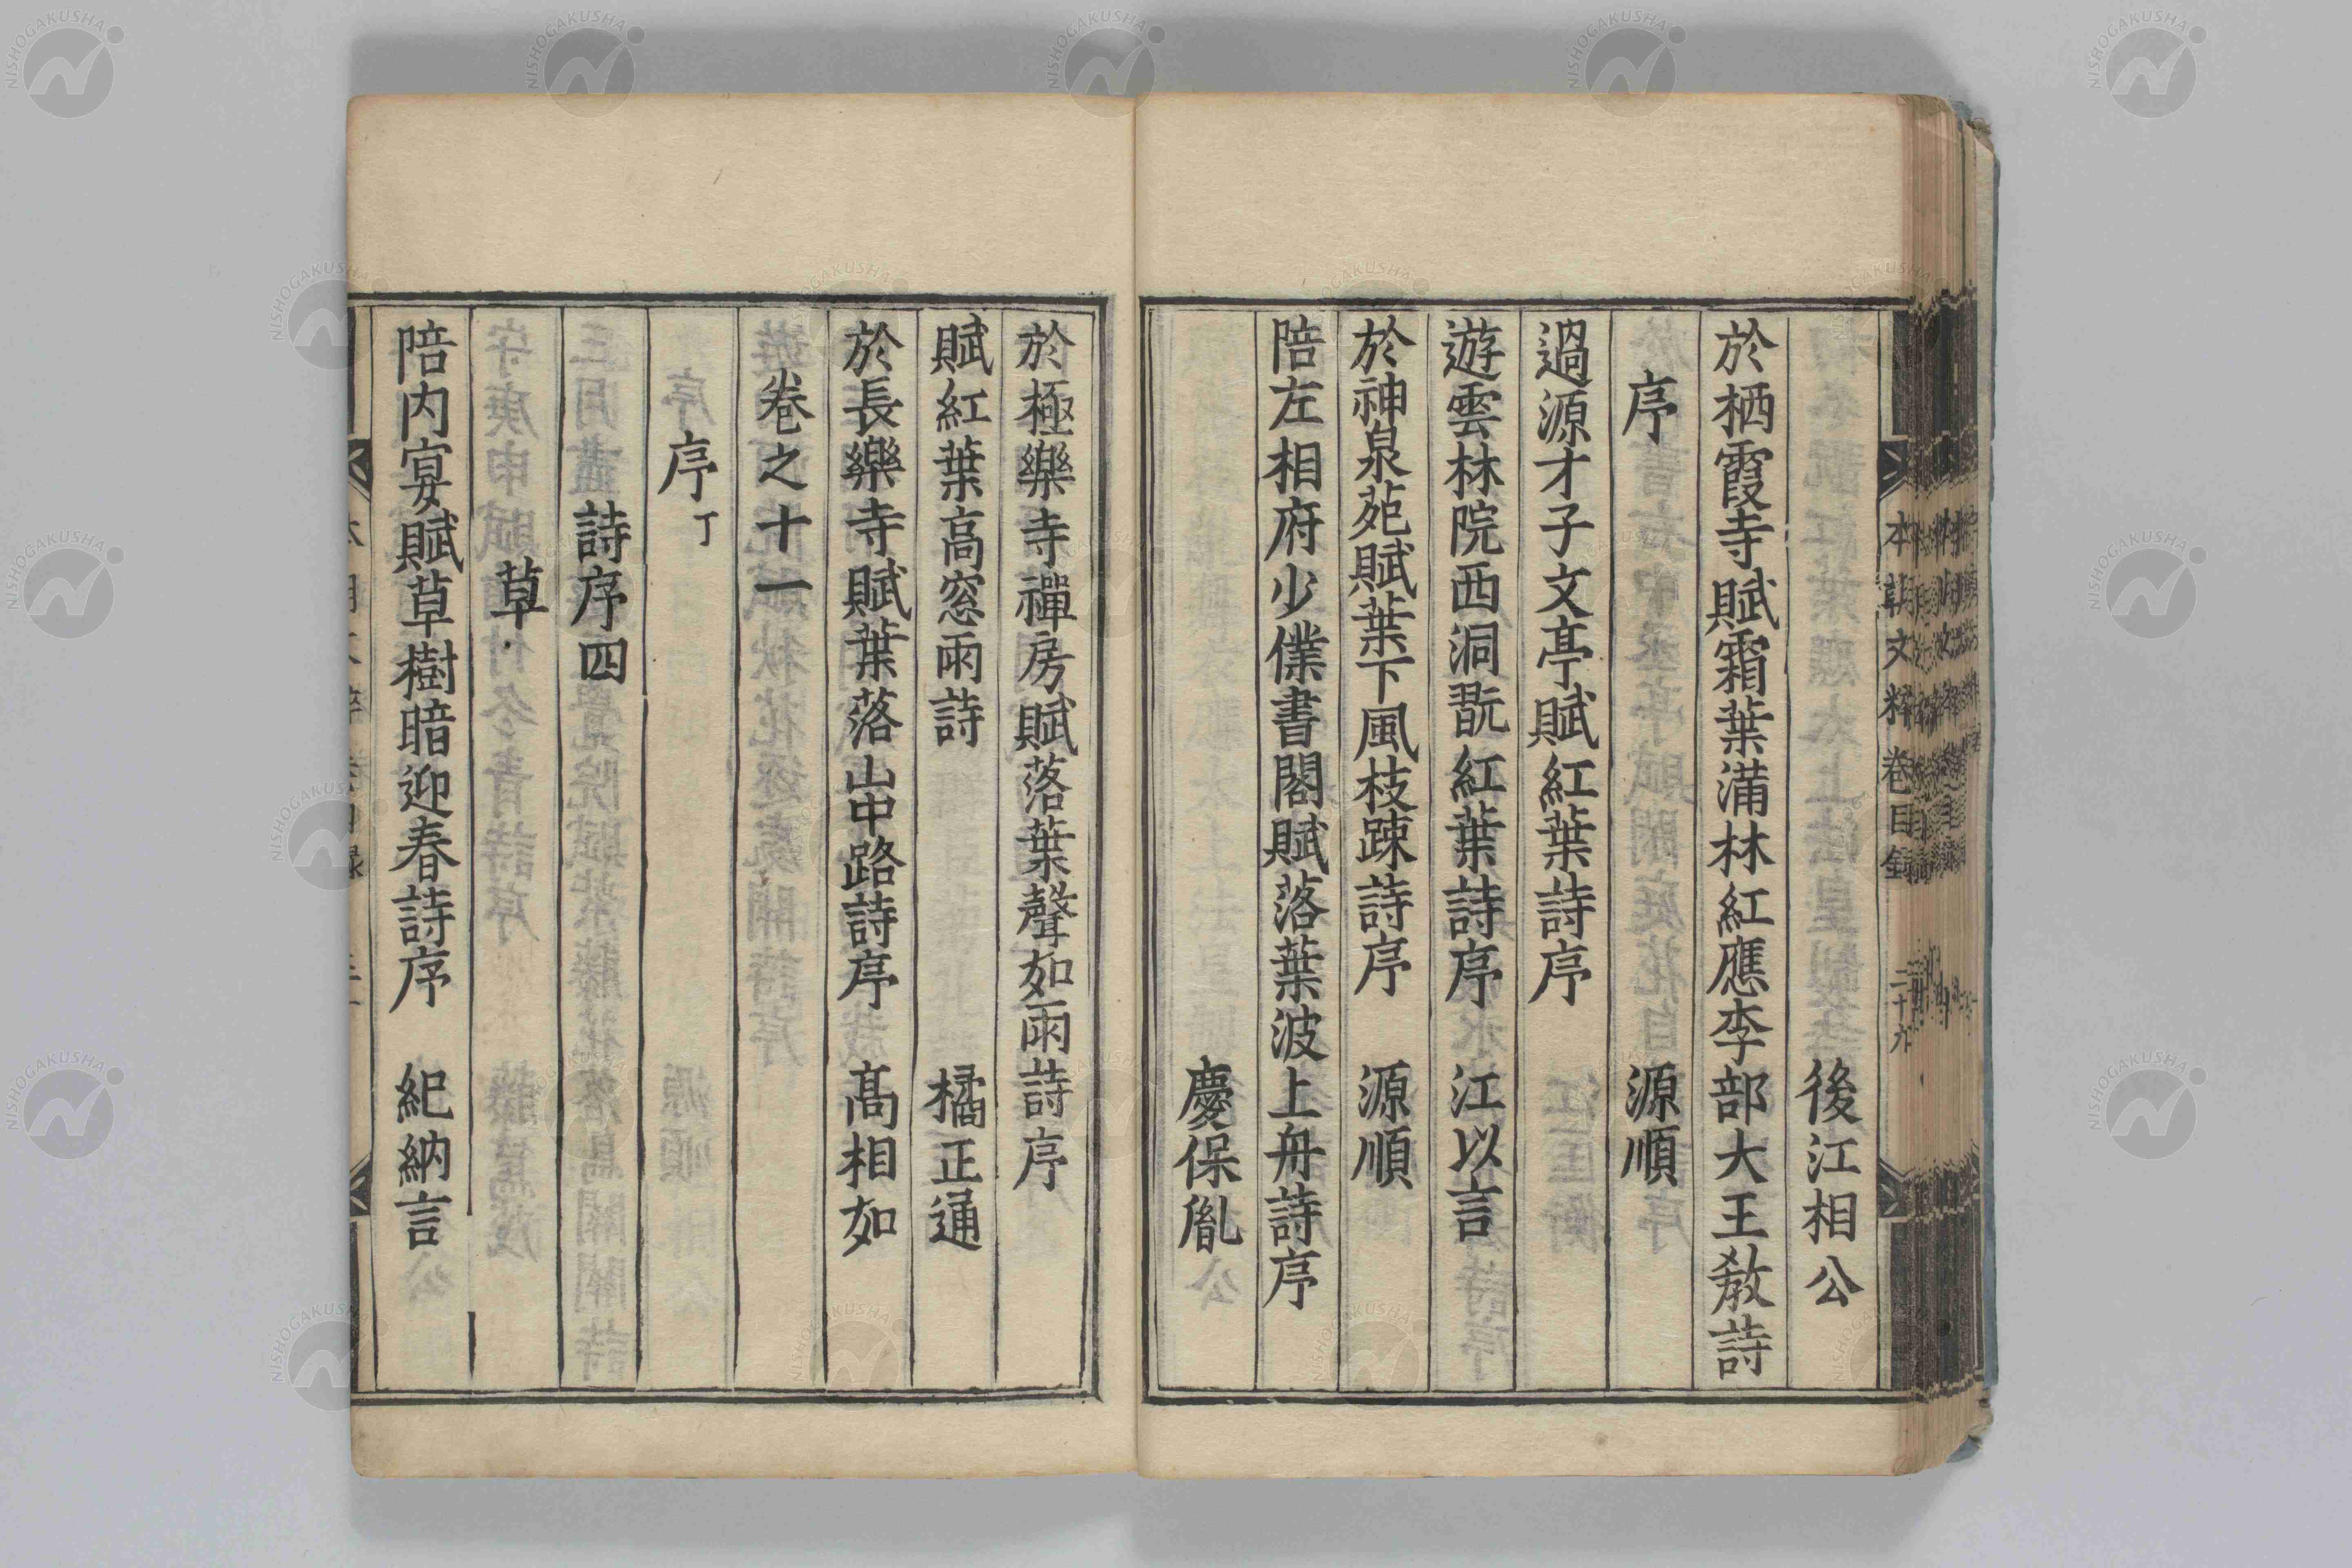 後江相公
於栖霞寺賦霜葉滿林紅應李部大王教詩
序 源順
過源才子文亭賦紅葉詩序
遊雲林院西洞翫紅葉詩序 江以言
於神泉苑賦葉下風枝踈詩序 源順
陪左相府少僕書閣賦落葉波上舟詩序
慶保胤
於極樂寺禪房賦落葉聲如雨詩序
賦紅葉高窓雨詩 橘正通
於長樂寺賦葉落山中路詩序 高相如
卷之十一
序丁
詩序四
草
陪内宴賦草樹暗迎春詩序 紀納言
本朝文粹卷目錄 二十九
NISHOGAKUSHA